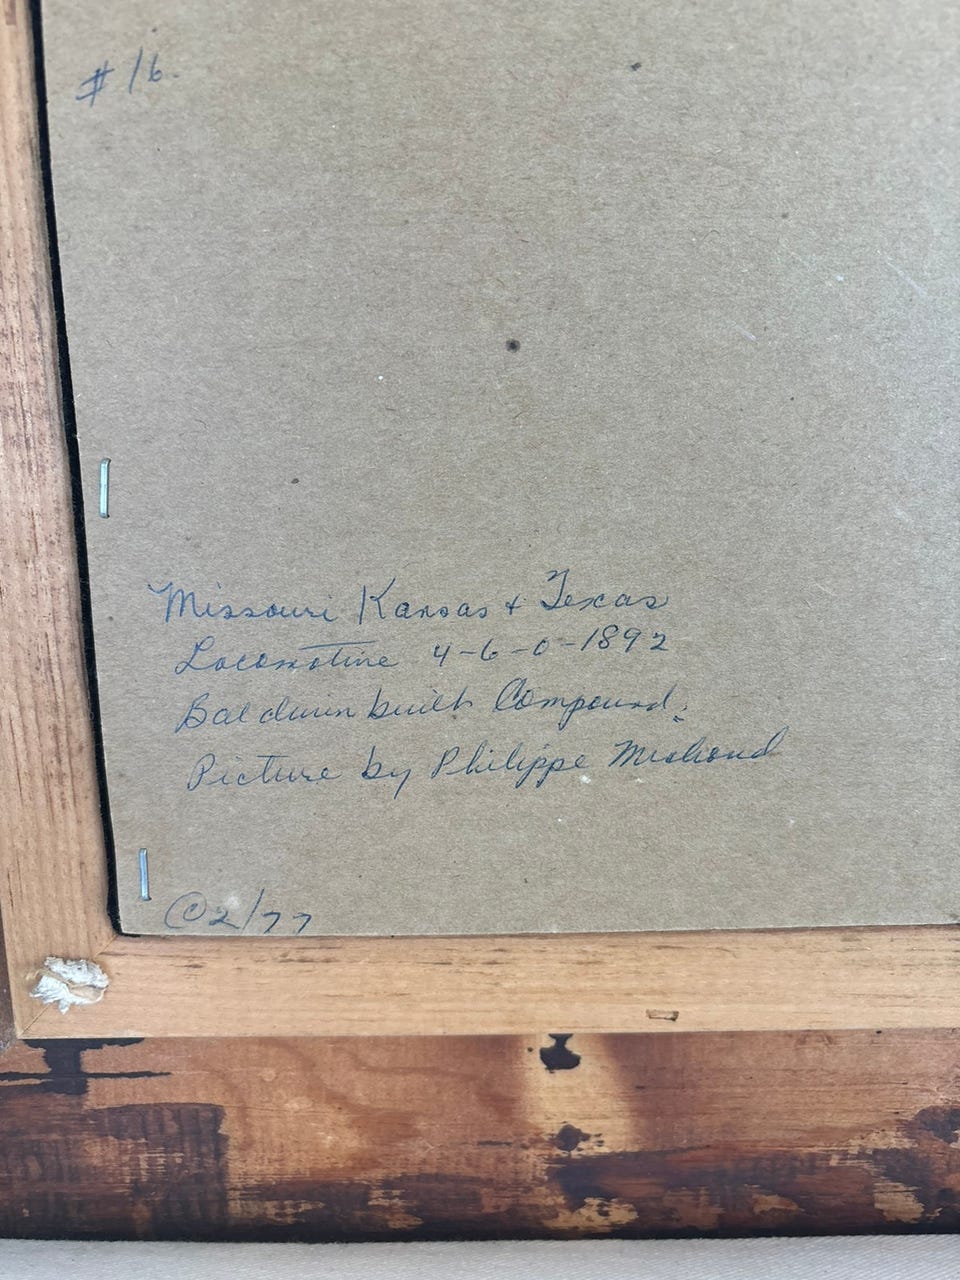 # 16.
Missouri Kansas & Texas
Locomotive 4-6-0-1892
Baldwin built Compound.
Picture by Philippe
© 2/77